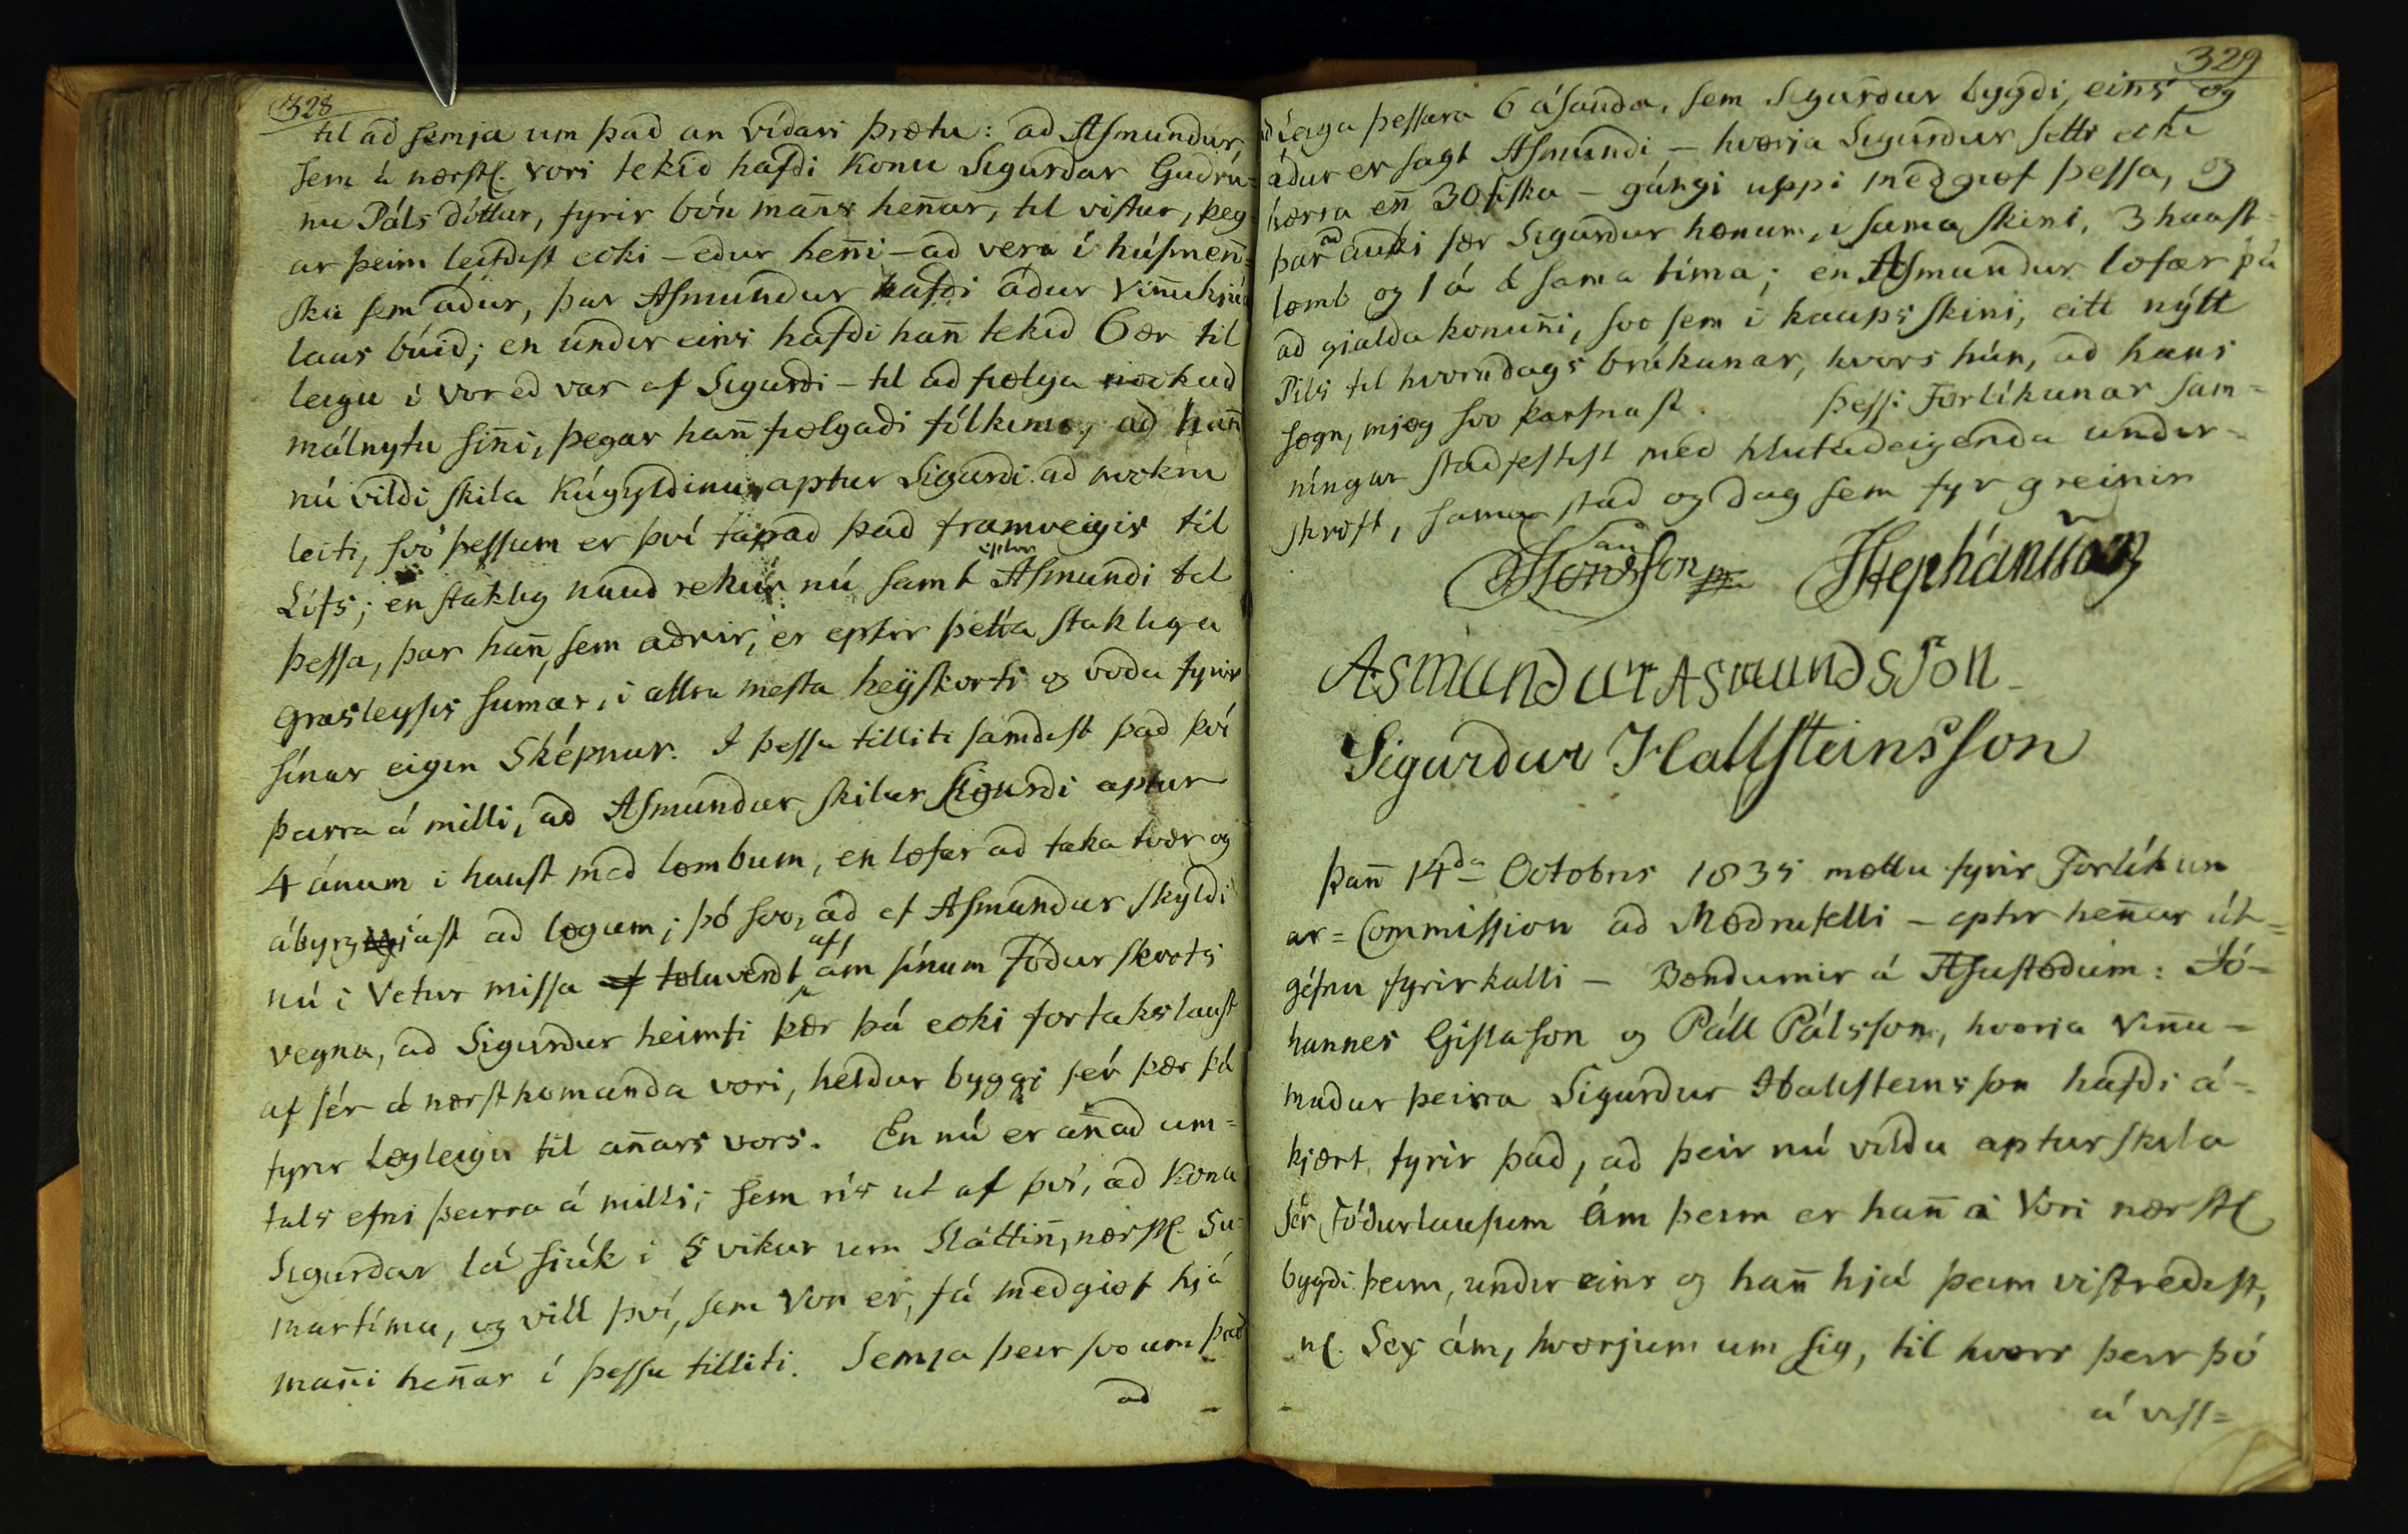 328
til að semja um það an víðari þrætu: að Asmundur,
sem á næstl. vori tekið hafði Konu Sigurðar Guðrú=
nu Páls dóttur, fyrir bón mans heñar, til vistur, þeg=
ar þeim leiðdist ecki – eður heñi – að vera í húsmeñ=
sku sem áður, þar Asmundur hafði áður viñuhjúa
laus búið; en undir eins hafði hañ tekið 6 ær til
leigu í vor eð var af Sigurði – til að fiølga nockuð
málnytu siñi, þegar hañ fiølgaði fólkinu, að hañ
nú vildi skila Kúgyldinu aptur Sigurði að nockru
leiti, svo þessum er því tapað það framveigis til
Lifs; en staklig nauð rekur nú samt Asmundi til
þessa, þar hañ, sem aðrir, er eptir þetta stakliga
grasleysis sumar, i allra mesta heÿskorti og voða fyrir
sínar eigin Sképnur. I þessu tilliti samdist það því
þeirra á milli, að Asmundur skilar Sigurði aptur
4 ánum i haust með lømbum, en lofar að taka tvær og
ábyrgjast að løgum; þó svo, að ef Asmundur skyldi
nú i Vetur missa af ám sínum Føður skorts
vegna, að Sigurður heimti þær þá ecki fortakslaust
af sér á næstkomanda vori, heldur byggi sér þær þá
fyrir Løgleigu til añars vors. En nú er añað um=
tals efni þeirra á milli; sem rís ut af því, að Kona
Sigurðar lá siúk i 5 vikur um Sláttiñ, næstl. Su=
martíma, og vill því, sem Von er, fá meðgiøf hjá
mañi heñar í þessu tilliti. Semja þeir svo um það
að
329
leiga þessara 6 ásauða, sem Sigurður bygði, eins og
áður er sagt Asmundi – hvørja Sigurður setti ecki
hærra eñ 30 fiska – gángi uppi meðgiøf þessa, og
þar að auki fær Sigurður hønum, i sama skini, 3 haust=
lømb og 1 á á sama tíma; en Asmundur lofar þá
að gialda konuñi, svo sem i kaups skini, eitt nýtt
Pils til hvørndags brúkunar, hvers hún, að hans
søgn, mjøg svo þarfnast. Þessi Forlíkunar sam=
níngur staðfestist með hlutaðeigenda undir=
skrift, sama stað og dag sem fyr greinir
JJónsson Stephánsson
AsmundurAsmundsson
Sigurður Hallsteinsson
Þañ 14da Octobris 1835 mættu fyrir Forlíkun
ar=Commission að Møðrufelli – eptir heñar út=
géfnu fyrirkalli – Bændurnir á Asustøðum: Jó=
hannes Gislason og Páll Pálsson, hvørja viñu=
maður þeirra Sigurður Hallsteinsson hafði á=
kjært, fyrir það, að þeir nú vildu aptur skila
sér Fóðurlausum Ám þeim er hañ á Vori næstl
bygði þeim, undir eins og hañ hjá þeim vistreðist,
nl. Sex ám, hvørjum um sig, til hvørs þeir þó
á viss=